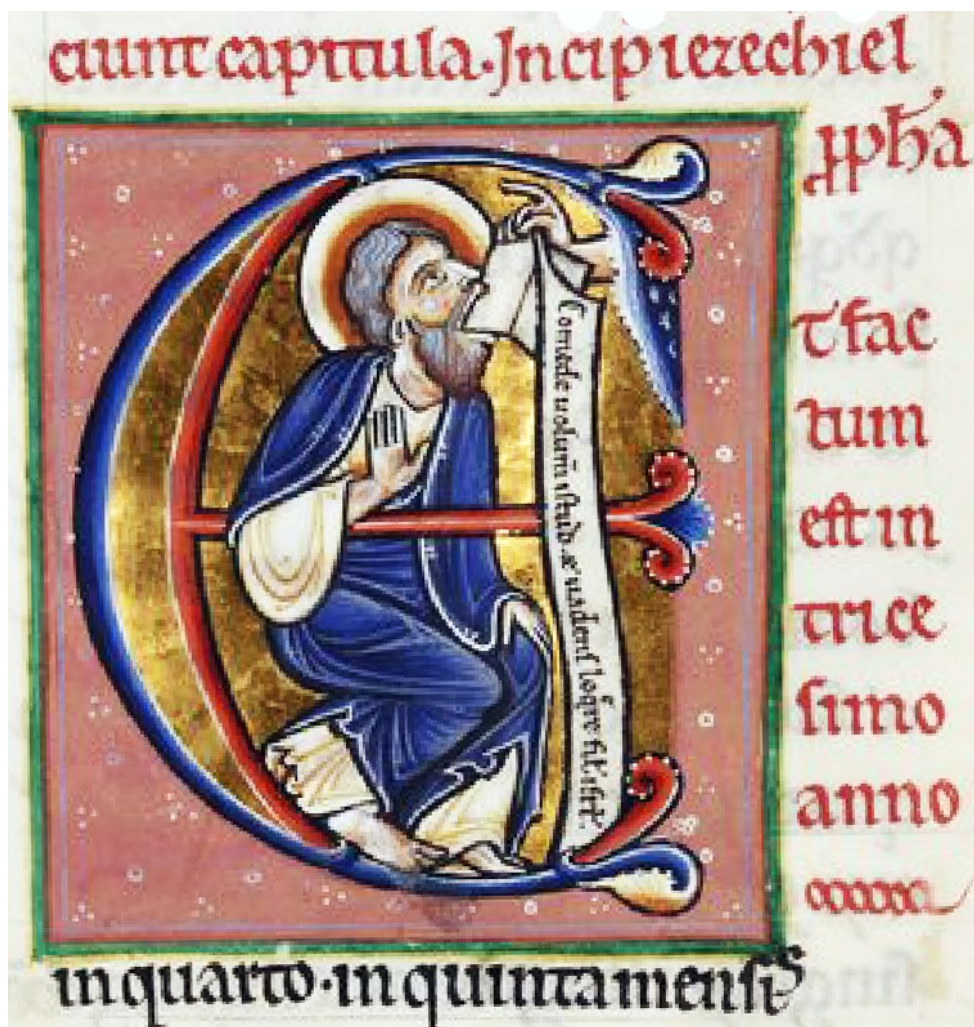 ciunt capitula. Incip iezechiel
ppħa
Et fac
tum
est in
trice
simo
anno
Comede uolum̄ istud. & uadens loq̄re fil'. isrl'.
in quarto. in quinta mensis